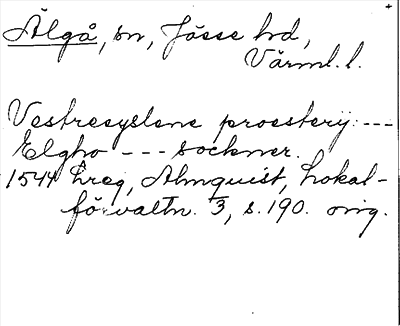 Älgå, sn, Jösse hd,
Värml. l.
Vestresyslene proestery: ---
Elgho --- sockner.
1544 hreg, Almquist, Lokal-
förvaltn. 3, s. 190. orig.